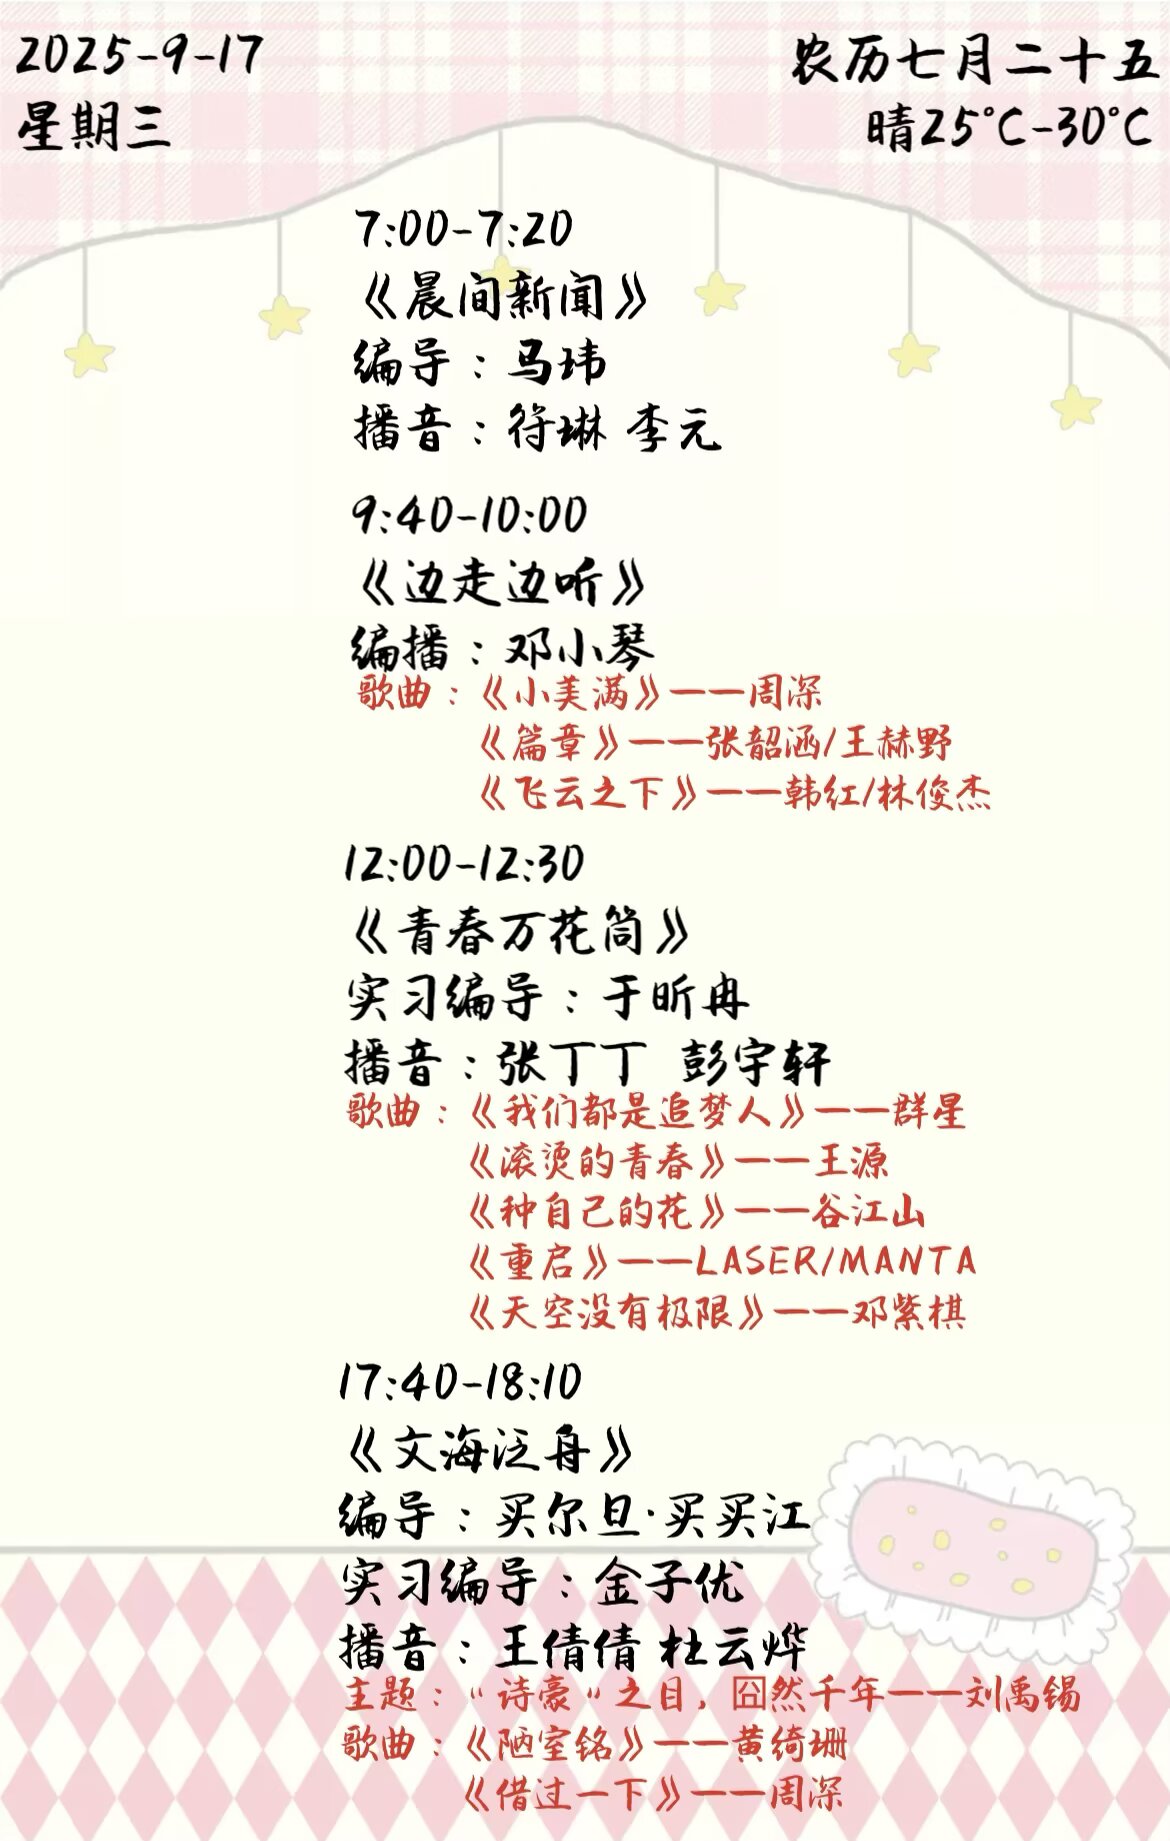 2025-9-17
农历七月二十五
星期三
晴25°C-30°C
7:00-7:20
《晨间新闻》
编导：马玮
播音：符琳 李元
9:40-10:00
《边走边听》
编播：邓小琴
歌曲：《小美满》——周深
《篇章》——张韶涵/王赫野
《飞云之下》——韩红/林俊杰
12:00-12:30
《青春万花筒》
实习编导：于昕冉
播音：张丁丁 彭宇轩
歌曲：《我们都是追梦人》——群星
《滚烫的青春》——王源
《种自己的花》——谷江山
《重启》——LASER/MANTA
《天空没有极限》——邓紫棋
17:40-18:10
《文海泛舟》
编导：买尔旦·买买江
实习编导：金子优
播音：王倩倩 杜云烨
主题："诗豪"之目，囧然千年——刘禹锡
歌曲：《陋室铭》——黄绮珊
《借过一下》——周深